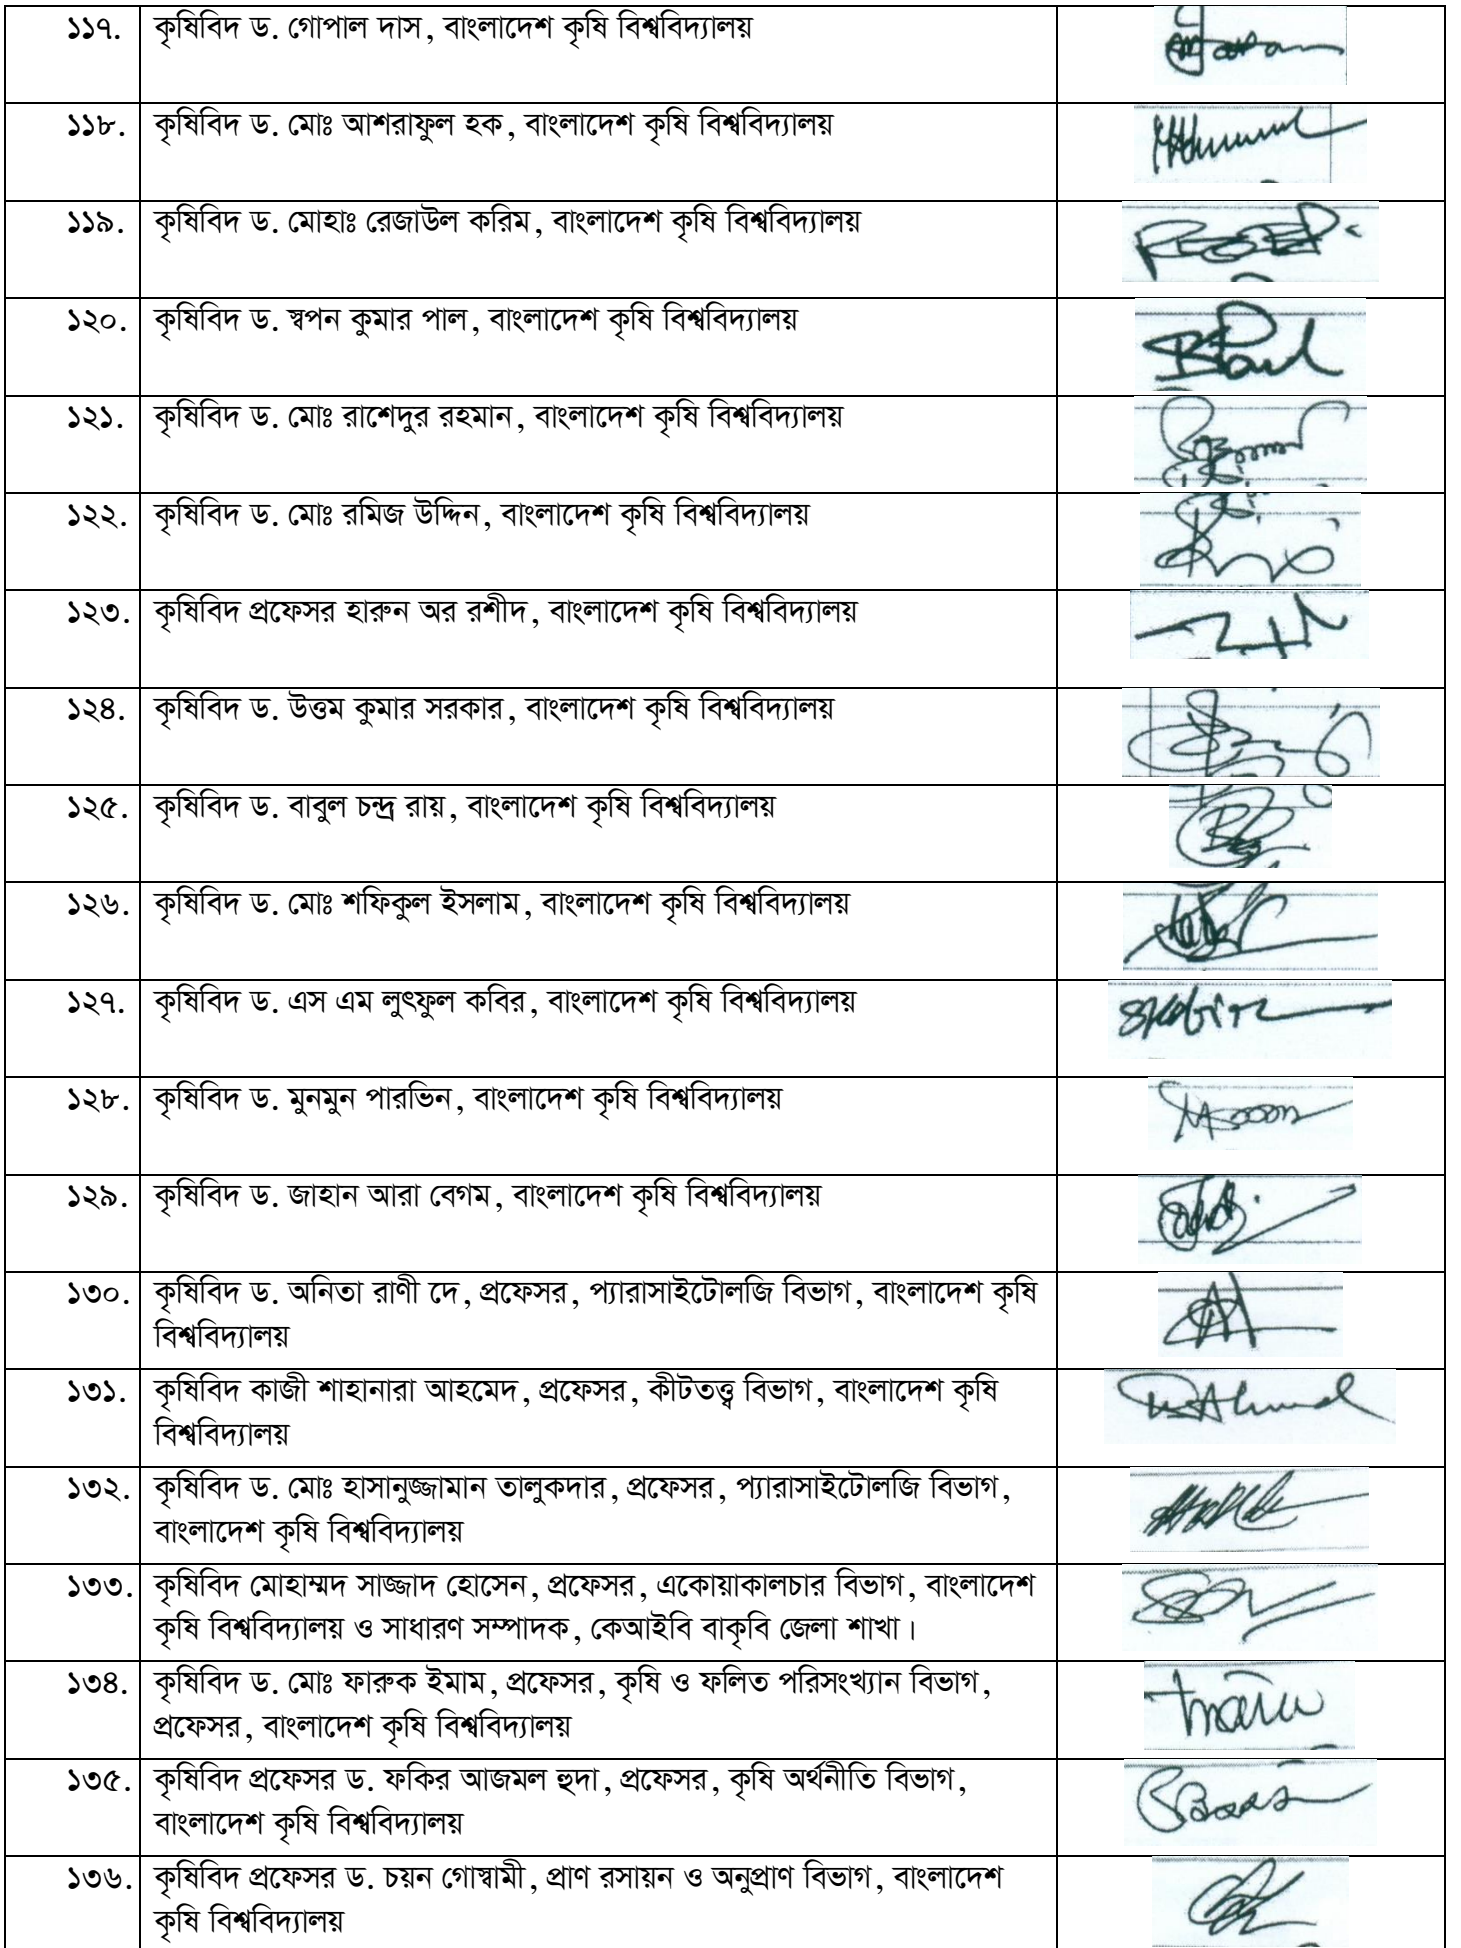 ১১৭. কৃষিবিদ ড. গোপাল দাস, বাংলাদেশ কৃষি বিশ্ববিদ্যালয়
১১৮. কৃষিবিদ ড. মোঃ আশরাফুল হক, বাংলাদেশ কৃষি বিশ্ববিদ্যালয়
১১৯. কৃষিবিদ ড. মোহাঃ রেজাউল করিম, বাংলাদেশ কৃষি বিশ্ববিদ্যালয়
১২০. কৃষিবিদ ড. স্বপন কুমার পাল, বাংলাদেশ কৃষি বিশ্ববিদ্যালয়
১২১. কৃষিবিদ ড. মোঃ রাশেদুর রহমান, বাংলাদেশ কৃষি বিশ্ববিদ্যালয়
১২২. কৃষিবিদ ড. মোঃ রমিজ উদ্দিন, বাংলাদেশ কৃষি বিশ্ববিদ্যালয়
১২৩. কৃষিবিদ প্রফেসর হারুন অর রশীদ, বাংলাদেশ কৃষি বিশ্ববিদ্যালয়
১২৪. কৃষিবিদ ড. উত্তম কুমার সরকার, বাংলাদেশ কৃষি বিশ্ববিদ্যালয়
১২৫. কৃষিবিদ ড. বাবুল চন্দ্র রায়, বাংলাদেশ কৃষি বিশ্ববিদ্যালয়
১২৬. কৃষিবিদ ড. মোঃ শফিকুল ইসলাম, বাংলাদেশ কৃষি বিশ্ববিদ্যালয়
১২৭. কৃষিবিদ ড. এস এম লুৎফুল কবির, বাংলাদেশ কৃষি বিশ্ববিদ্যালয়
১২৮. কৃষিবিদ ড. মুনমুন পারভিন, বাংলাদেশ কৃষি বিশ্ববিদ্যালয়
১২৯. কৃষিবিদ ড. জাহান আরা বেগম, বাংলাদেশ কৃষি বিশ্ববিদ্যালয়
১৩০. কৃষিবিদ ড. অনিতা রাণী দে, প্রফেসর, প্যারাসাইটোলজি বিভাগ, বাংলাদেশ কৃষি
বিশ্ববিদ্যালয়
১৩১. কৃষিবিদ কাজী শাহানারা আহমেদ, প্রফেসর, কীটতত্ত্ব বিভাগ, বাংলাদেশ কৃষি
বিশ্ববিদ্যালয়
১৩২. কৃষিবিদ ড. মোঃ হাসানুজ্জামান তালুকদার, প্রফেসর, প্যারাসাইটোলজি বিভাগ,
বাংলাদেশ কৃষি বিশ্ববিদ্যালয়
১৩৩. কৃষিবিদ মোহাম্মদ সাজ্জাদ হোসেন, প্রফেসর, একোয়াকালচার বিভাগ, বাংলাদেশ
কৃষি বিশ্ববিদ্যালয় ও সাধারণ সম্পাদক, কেআইবি বাকৃবি জেলা শাখা।
১৩৪. কৃষিবিদ ড. মোঃ ফারুক ইমাম, প্রফেসর, কৃষি ও ফলিত পরিসংখ্যান বিভাগ,
প্রফেসর, বাংলাদেশ কৃষি বিশ্ববিদ্যালয়
১৩৫. কৃষিবিদ প্রফেসর ড. ফকির আজমল হুদা, প্রফেসর, কৃষি অর্থনীতি বিভাগ,
বাংলাদেশ কৃষি বিশ্ববিদ্যালয়
১৩৬. কৃষিবিদ প্রফেসর ড. চয়ন গোস্বামী, প্রাণ রসায়ন ও অনুপ্রাণ বিভাগ, বাংলাদেশ
কৃষি বিশ্ববিদ্যালয়